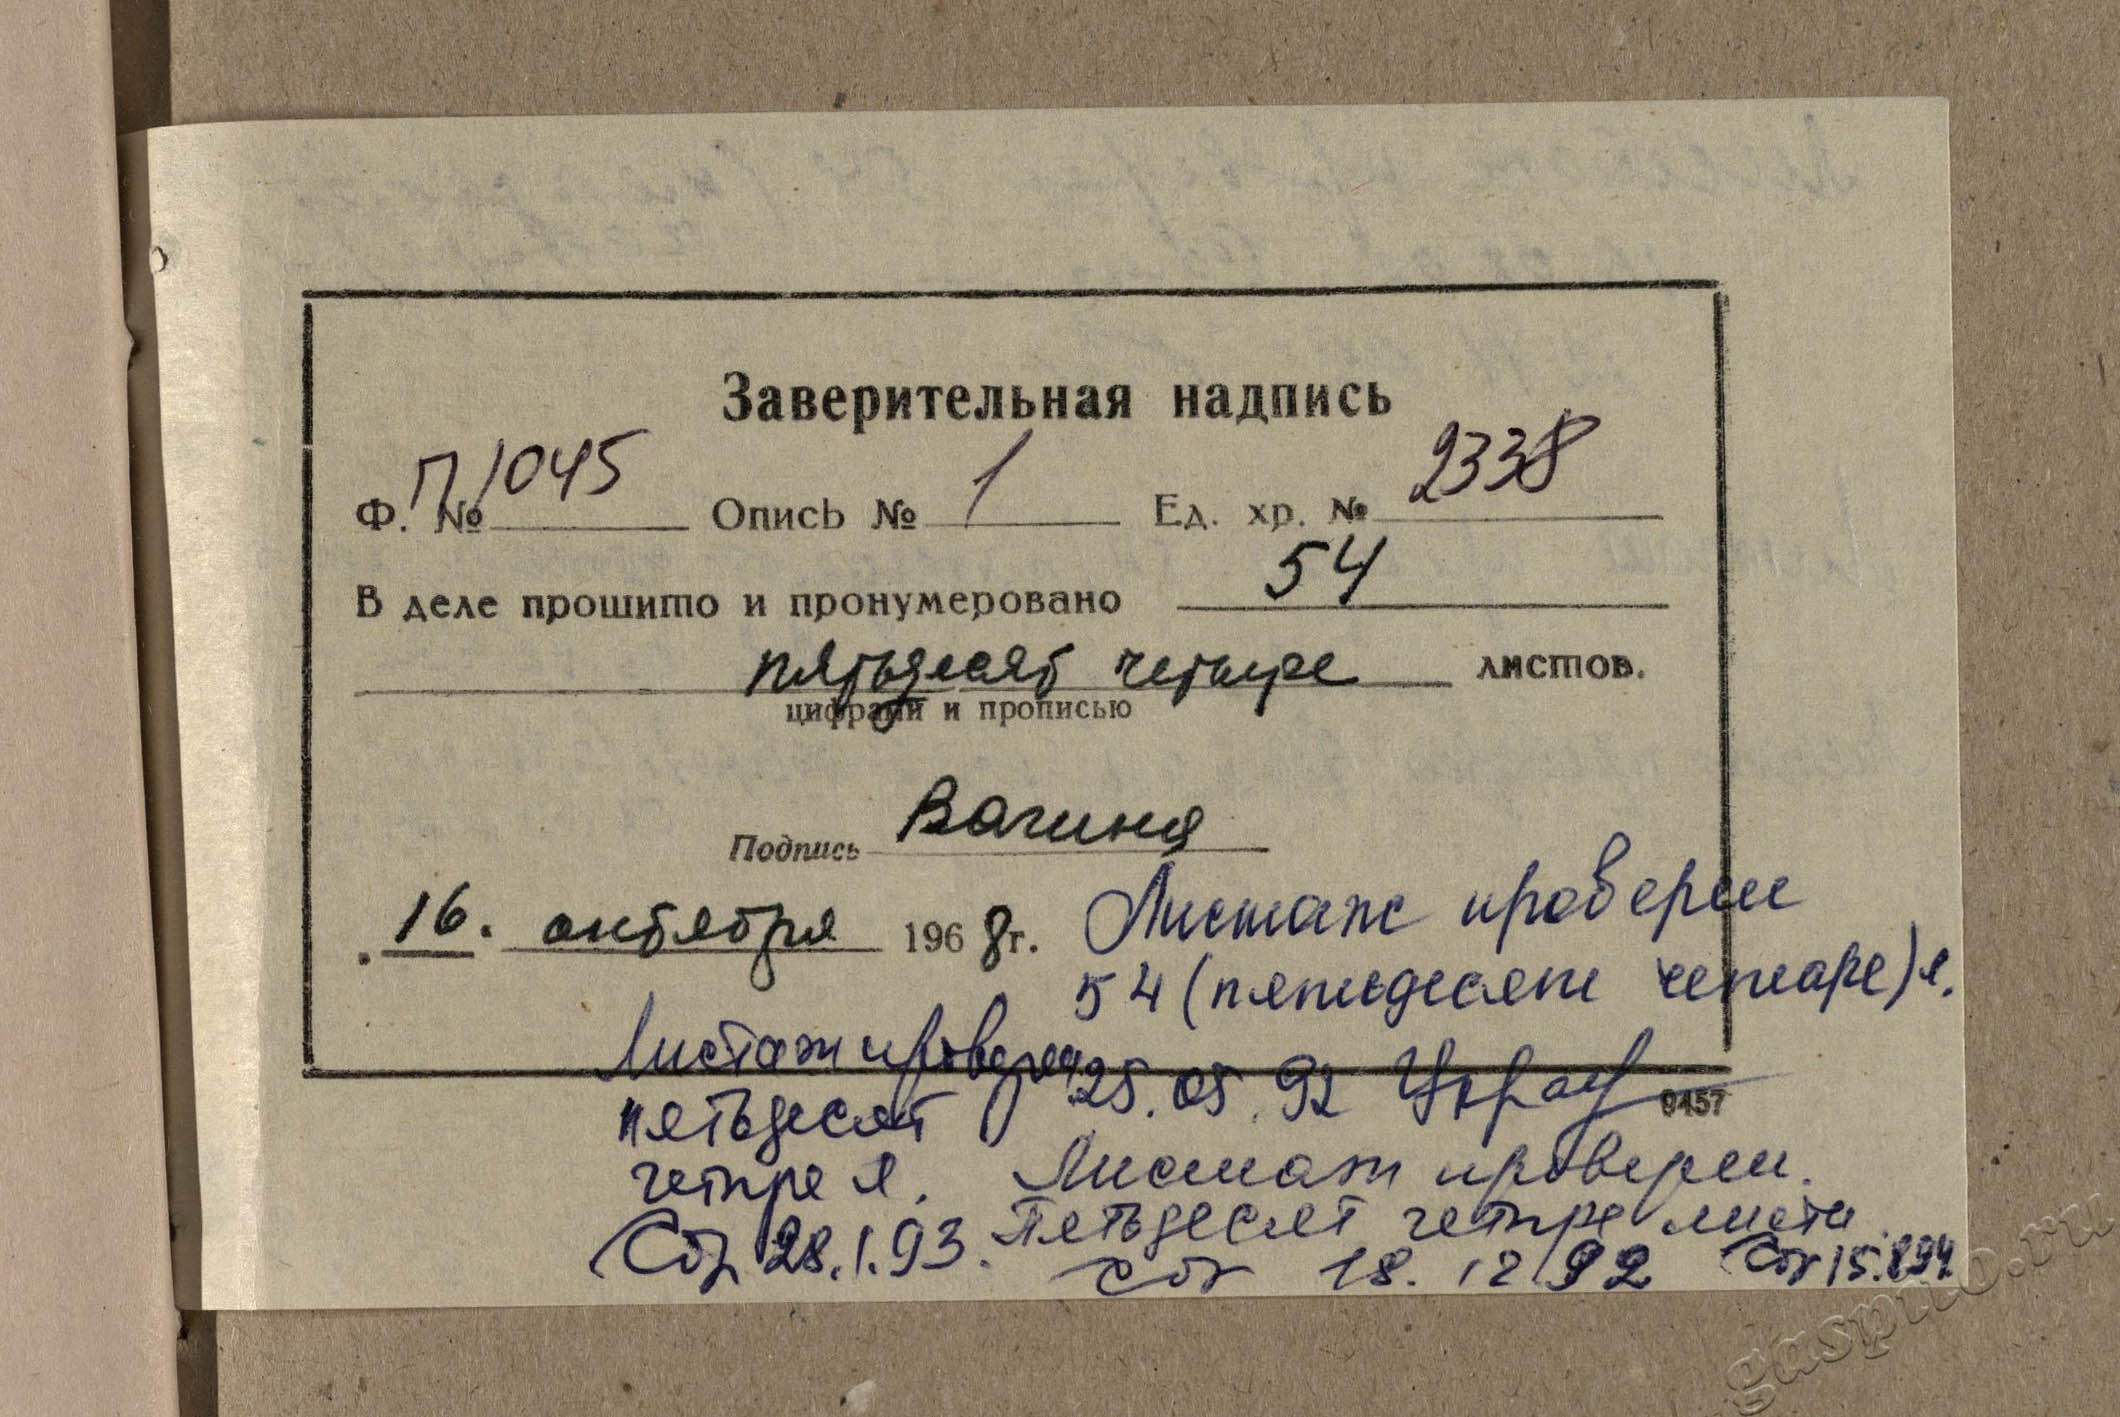 Заверительная надпись
Ф. № П1045 Опись № 1 Ед. хр. № 2338
В деле прошито и пронумеровано 54
пятьдесят четыре листов.
цифрами и прописью
Подпись Вагина
16. октября 1968 г.
Листаж проверен
54 (пятьдесят четыре) л.
25.05.92
9457
Листаж проверен
пятьдесят
четыре л.
28.1.93.
Листаж проверен.
Пятьдесят четыре листа
18.12.92
15.8.94
gaspito.ru